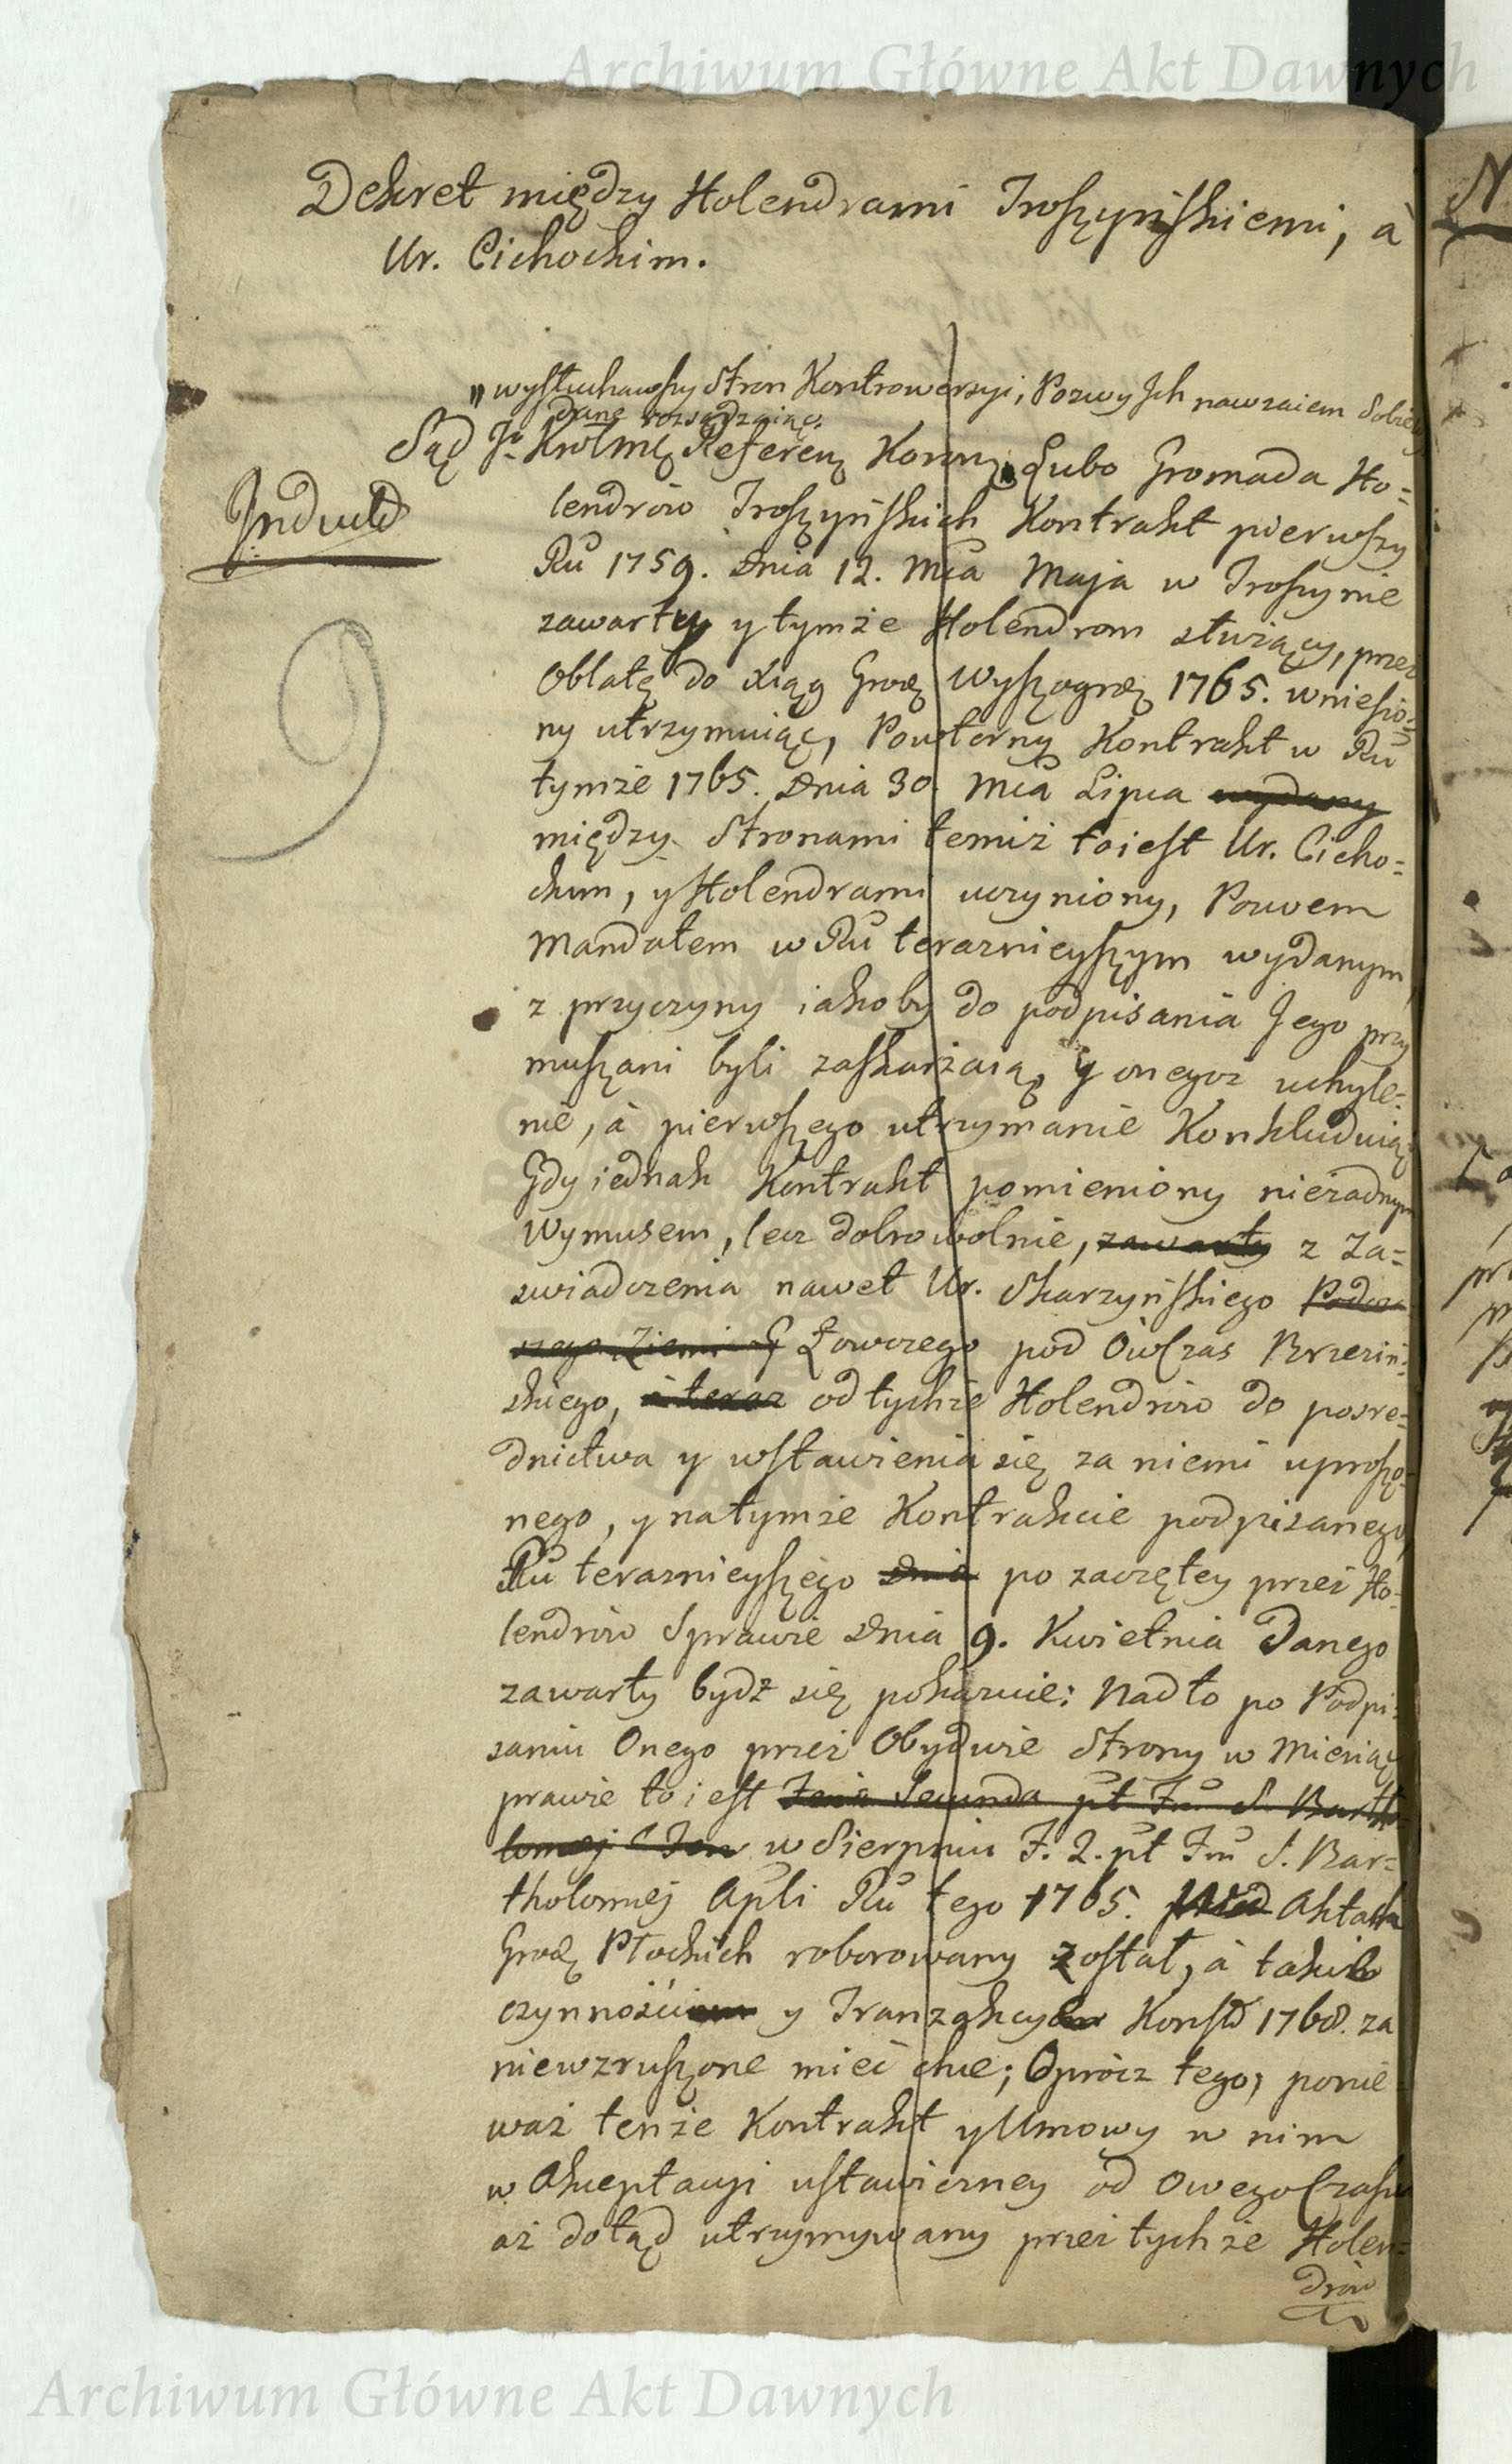 Archiwum Główne Akt Dawnych
Dekret między Holendrami Troszyńskiemi, à
Ur. Cichockim.
"wysłuchawszy Stron Kontrowersyi, Pozwy Ich nawzaiem Sobie
dane rozsądzaiąc
Sąd Jr. Krolmę Referenę Koronę Lubo Gromada Ho=
Induct
lendrow Troszyńskich Kontrakt pierwszy
Ru 1759. Dnia 12. Mca Maja w Troszynie
zawarty y tymże Holendrom służący, przez
Oblatę do Xiąg Grodz Wyszogrodz 1765. wniesio=
ny utrzymuiąc, Powtorny Kontrakt w Ru
tymże 1765. Dnia 30. Mca Lipca wydany
między Stronami temiż to iest Ur. Cicho=
ckim, y Holendrami uczyniony, Pozwem
Mandatem w Ru teraznieyszym wydanym,
z przyczyny iakoby do podpisania Jego przy
muszani byli zaskarżaią, y onegoż uchyle=
nie, à pierwszego utrzymanie Konkluduią
Gdy iednak Kontrakt pomieniony nieżadnym
Wymusem, lecz dobrowolnie, zawarty z Za=
swiadczenia nawet Ur. Skarzyńskiego Podcza
szego Ziemi G Łowczego pod Ow Czas Brzeziń=
skiego, à teraz od tychże Holendrow do posre=
dnictwa y wstawienia się za niemi uproszo=
nego, y na tymże Kontrakcie podpisanego,
Ru teraznieyszego Dnia po zaczętey przez Ho=
lendrow Sprawie Dnia 9. Kwietnia Danego
zawarty bydź się pokazuie: Nadto po Podpi=
saniu Onego przez Obydwie Strony w Miesiąc
prawie to iest Feria Secunda pt Fm S. Bartho
lomej w Sierpniu F. 2. pt Fm S. Bar=
tholomej Apli Ru tego 1765. Aktami
Grodz Płockich roborowany został, à takie
czynności y Tranzakcye Konst 1768. za
niewzruszone mieć chce; Oprócz tego, ponie=
waż tenże Kontrakt y Umowy w nim
w Akceptacyi ustawiczney od Owego Czasu
aż dotąd utrzymywany przez tychże Holen=
drow
Archiwum Główne Akt Dawnych